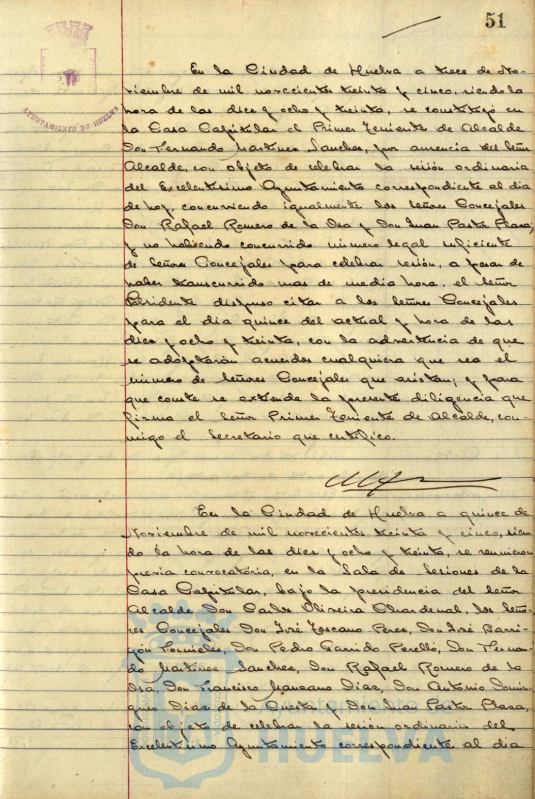 51
AYUNTAMIENTO DE HUELVA
En la Ciudad de Huelva a trece de No-
viembre de mil novecientos treinta y cinco, siendo la
hora de las diez y ocho y treinta, se constituyó en
la Casa Capitular el Primer Teniente de Alcalde
Don Fernando Martinez Sanchez, por ausencia del Señor
Alcalde, con objeto de celebrar la sesión ordinaria
del Excelentisimo Ayuntamiento correspondiente al dia
de hoy, concurriendo igualmente los señores Concejales
Don Rafael Romero de la Osa y Don Juan Pastor Plaza,
y no habiendo concurrido número legal suficiente
de Señores Concejales para celebrar sesión, a pesar de
haber transcurrido mas de media hora, el Señor
Presidente dispuso citar a los Señores Concejales
para el dia quince del actual y hora de las
diez y ocho y treinta, con la advertencia de que
se adoptarán acuerdos cualquiera que sea el
número de Señores Concejales que asistan, y para
que conste se extiende la presente diligencia que
firma el Señor Primer Teniente de Alcalde, con-
migo el Secretario que certifico.
En la Ciudad de Huelva a quince de
Noviembre de mil novecientos treinta y cinco, sien-
do la hora de las diez y ocho y treinta, se reunieron
previa convocatoria, en la Sala de Sesiones de la
Casa Capitular, bajo la presidencia del Señor
Alcalde Don Carlos Oliveira Chardenal, los Seño-
res Concejales Don José Toscano Perez, Don José Barri-
gón Fornieles, Don Pedro Garrido Perelló, Don Fernan-
do Martinez Sanchez, Don Rafael Romero de la
Osa, Don Francisco Manzano Diaz, Don Antonio Domin-
guez Diaz de la Cuesta y Don Juan Pastor Plaza,
con objeto de celebrar la sesión ordinaria del
Excelentisimo Ayuntamiento correspondiente al dia
Ayuntamiento de
HUELVA